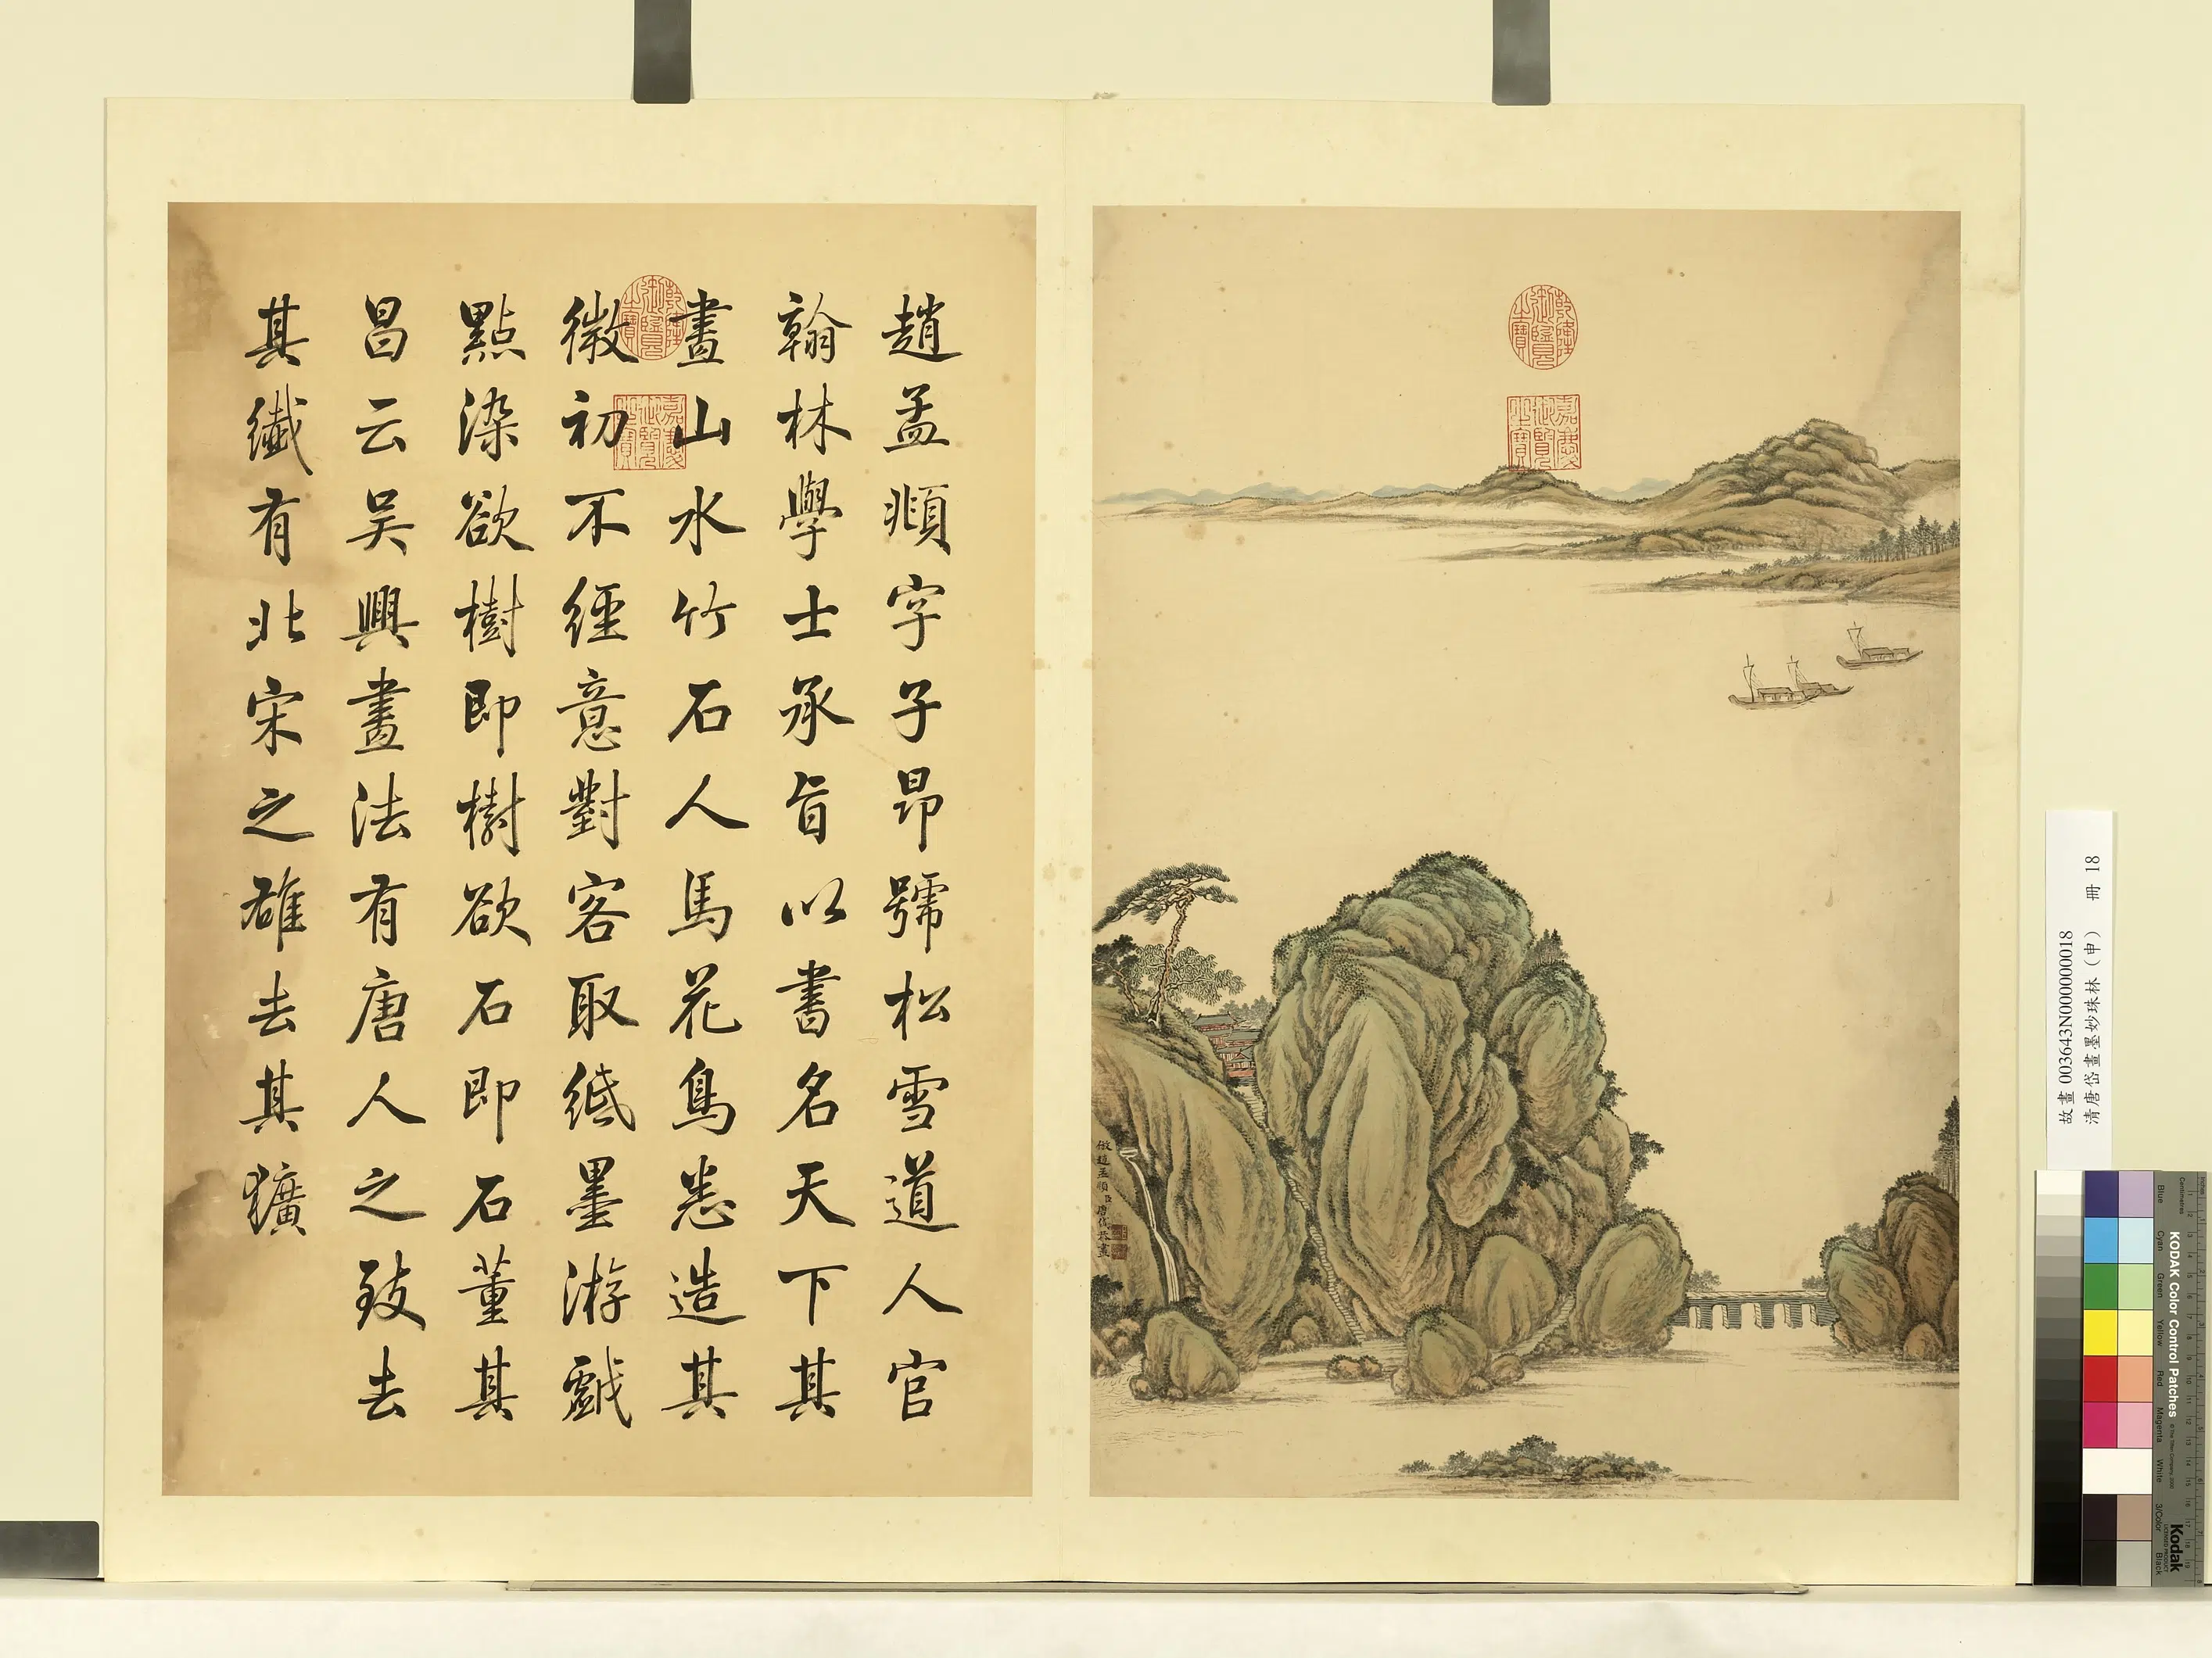 趙孟頫字子昂號松雪道人官
翰林學士承旨以書名天下其
畫山水竹石人馬花鳥悉造其
微初不經意對客取紙墨游戲
點染欲樹即樹欲石即石董其
昌云吳興畫法有唐人之致去
其纖有北宋之雄去其獷
乾隆御覽之寶
嘉慶御覽之寶
乾隆御覽之寶
嘉慶御覽之寶
倣趙孟頫臣唐岱恭畫
故畫 003643N000000018
清唐岱畫墨妙珠林（申） 冊 18
KODAK Color Control Patches
Blue Cyan Green Yellow Red Magenta White 3/Color Black
Kodak
Centimetres
Inches